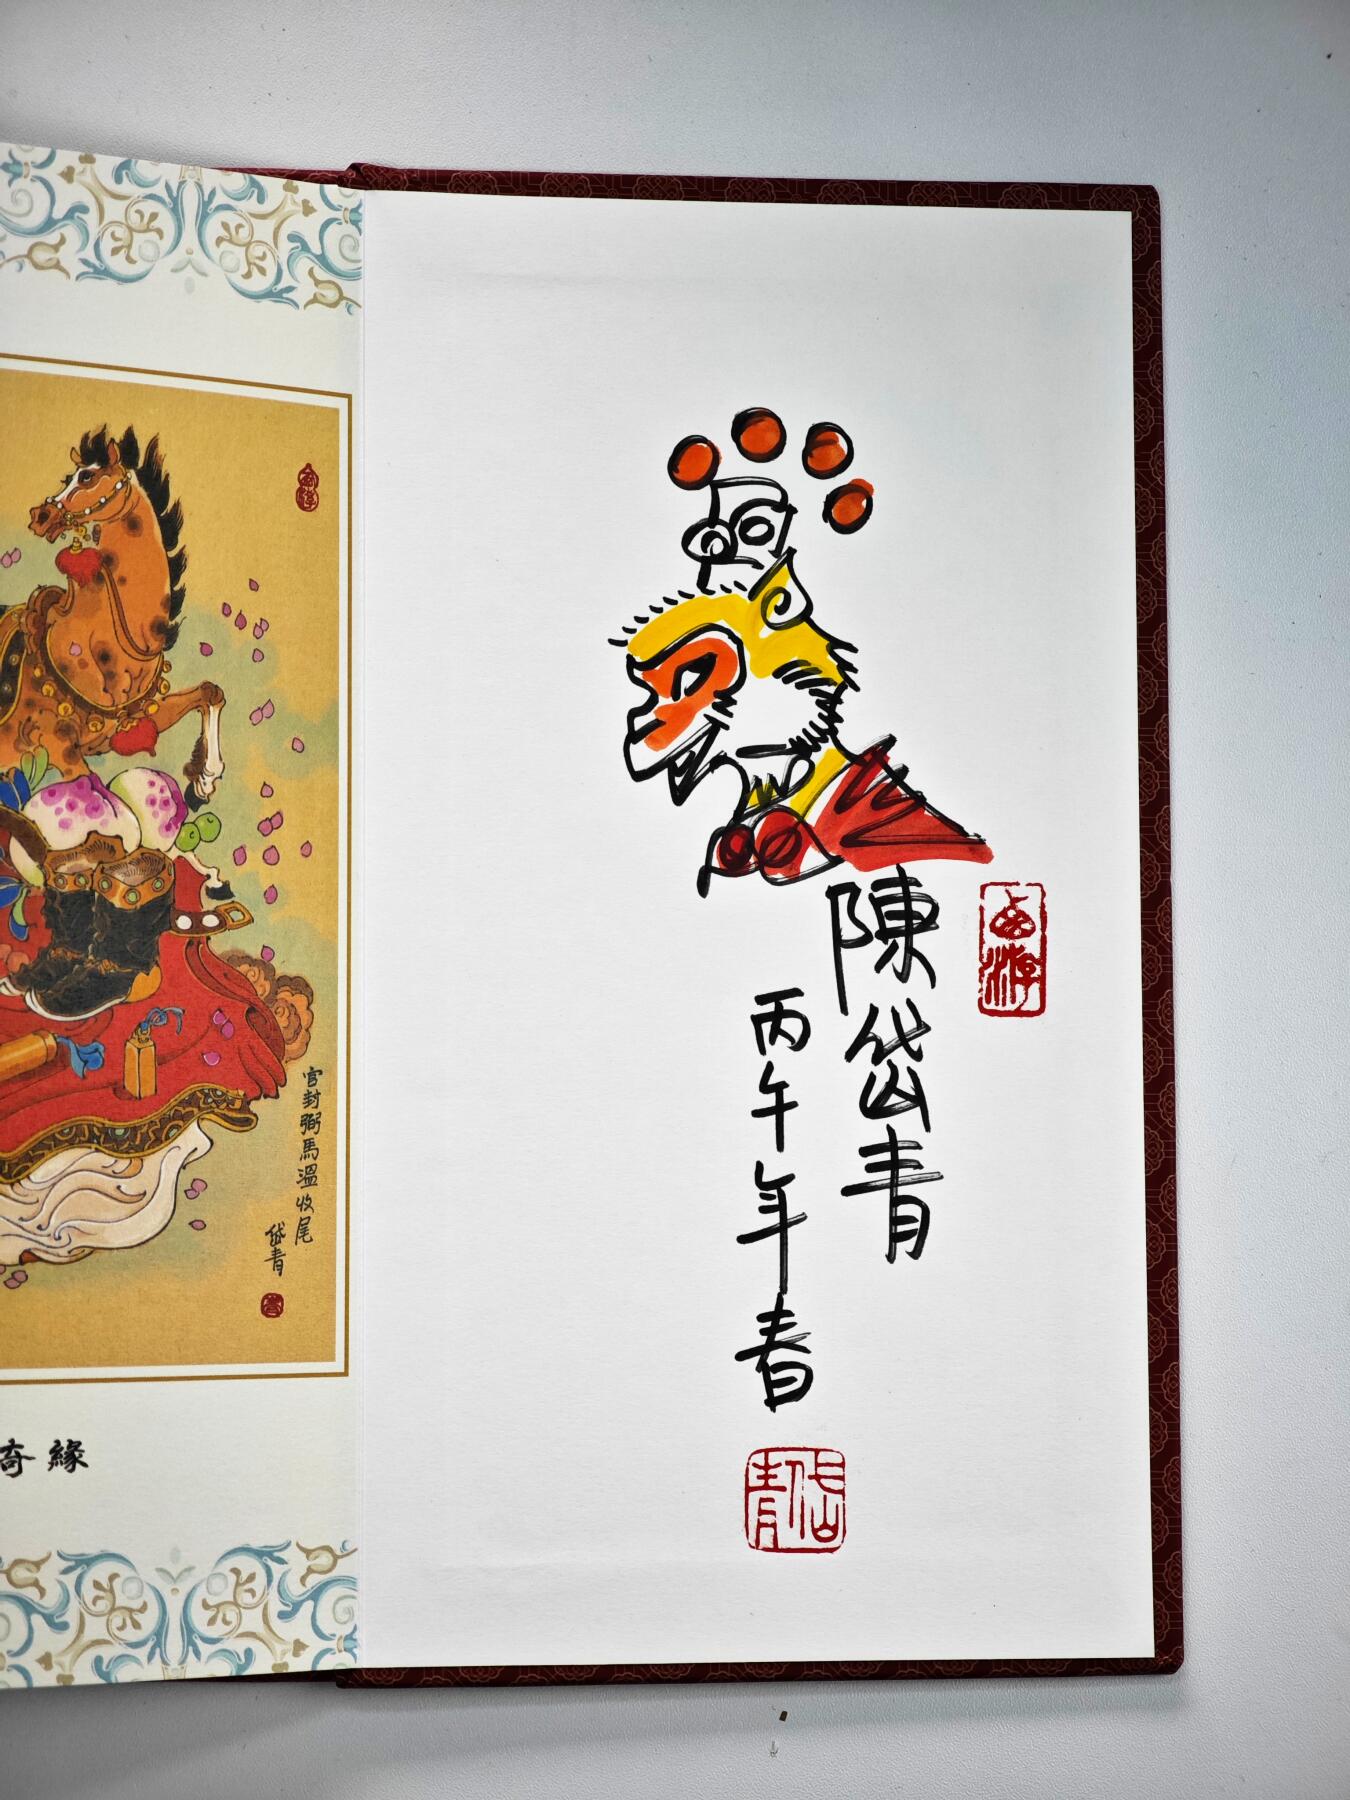 陳岱青
丙午年春
岱青
官封弼馬溫收尾
岱青
奇緣